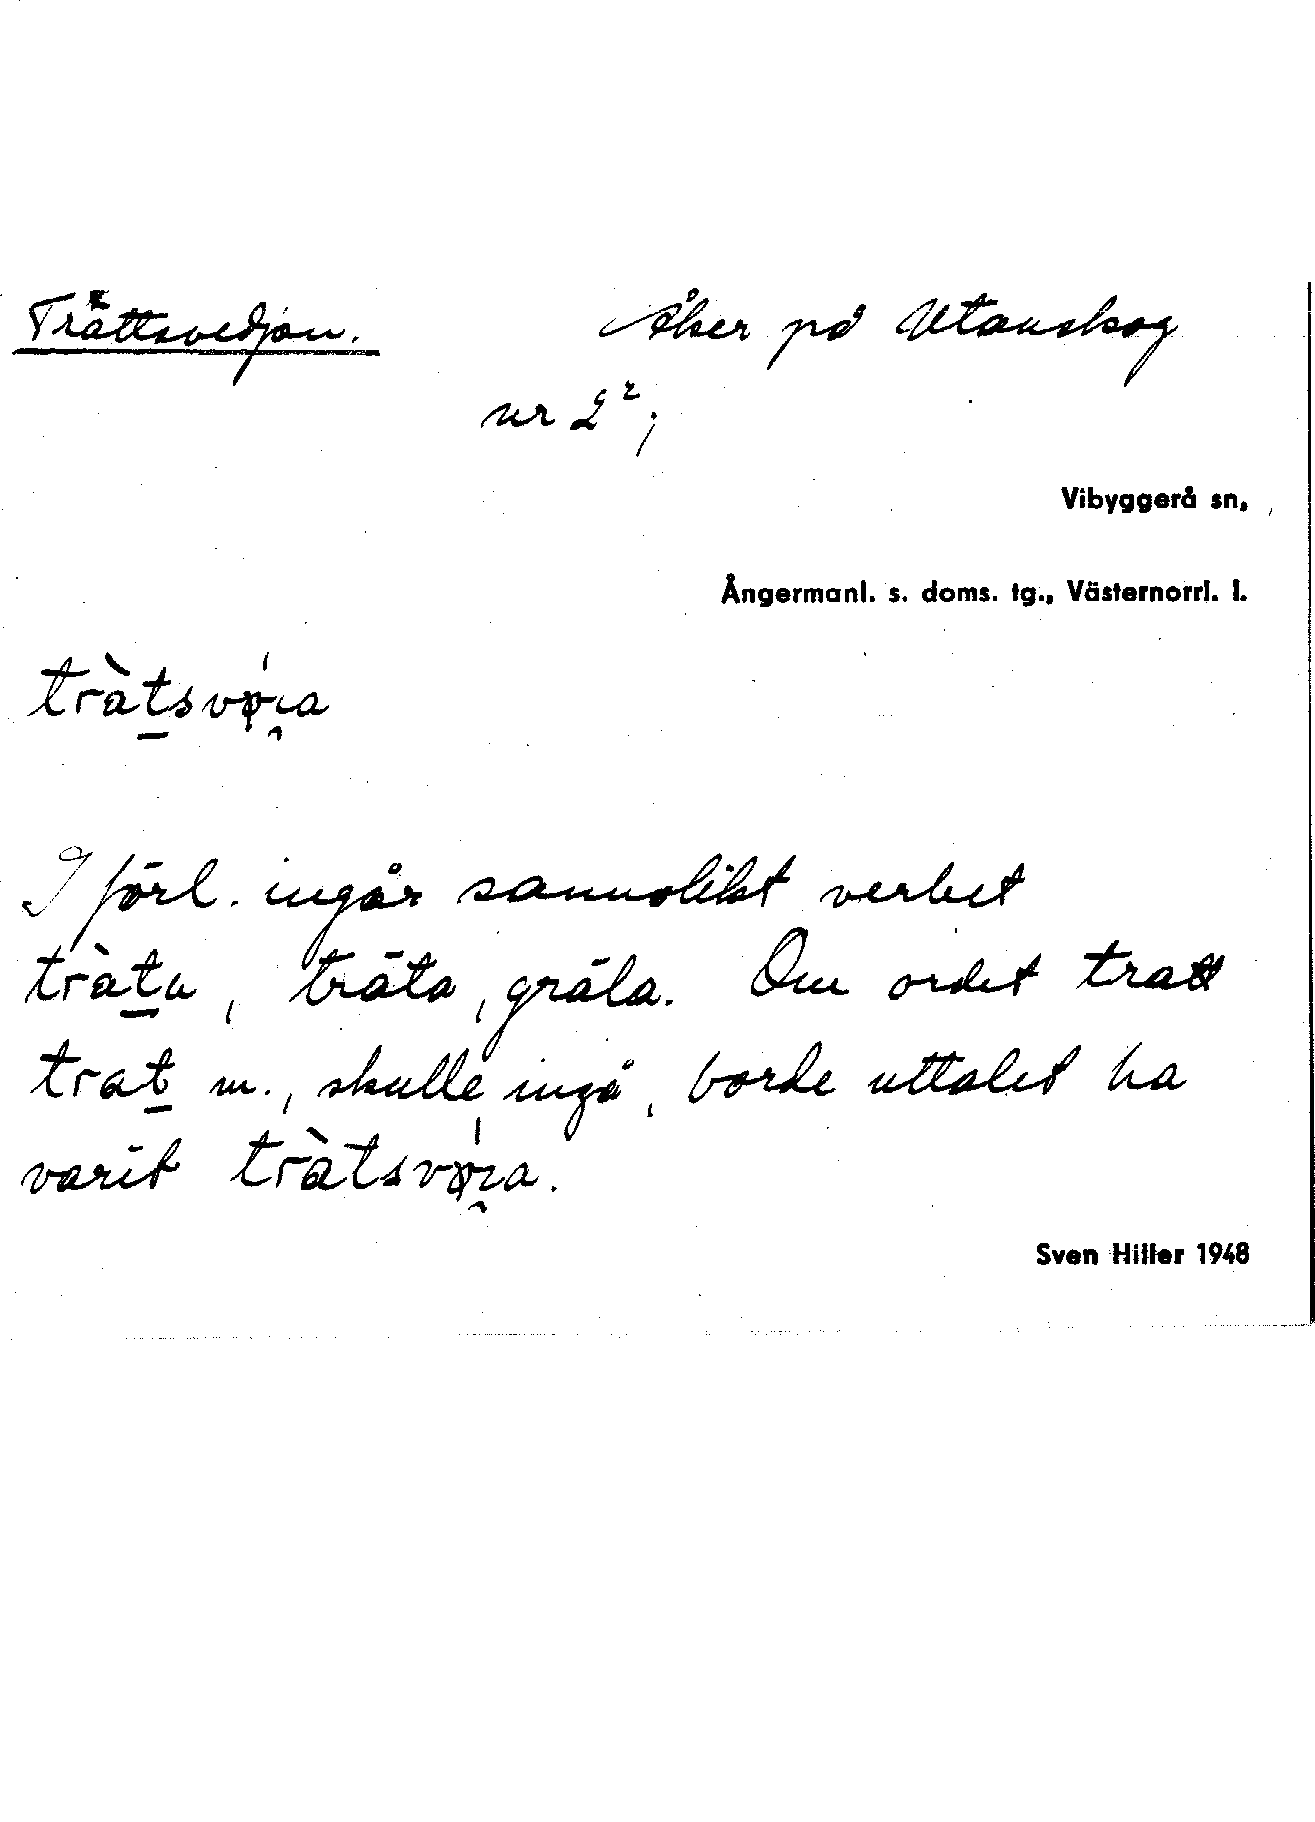 Trättsvedjan. Åker på Utanskog
nr 2²;
Vibyggerå sn,
Ångermanl. s. doms. tg., Västernorrl. l.
I förl. ingår sannolikt verbet
träta, gräla. Om ordet tratt
m., skulle ingå, borde uttalet ha
varit
Sven Hiller 1948